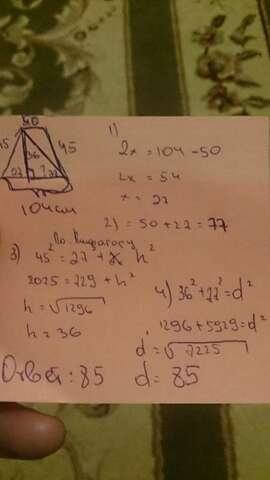 50
45
36
45
27
27
104см
1)
2x = 104 - 50
2x = 54
x = 27
2) = 50 + 27 = 77
По Пифагору
3) 45² = 27 + h²
2025 = 729 + h²
h = √1296
h = 36
4) 36² + 77² = d²
1296 + 5929 = d²
d = √7225
d = 85
Ответ: 85